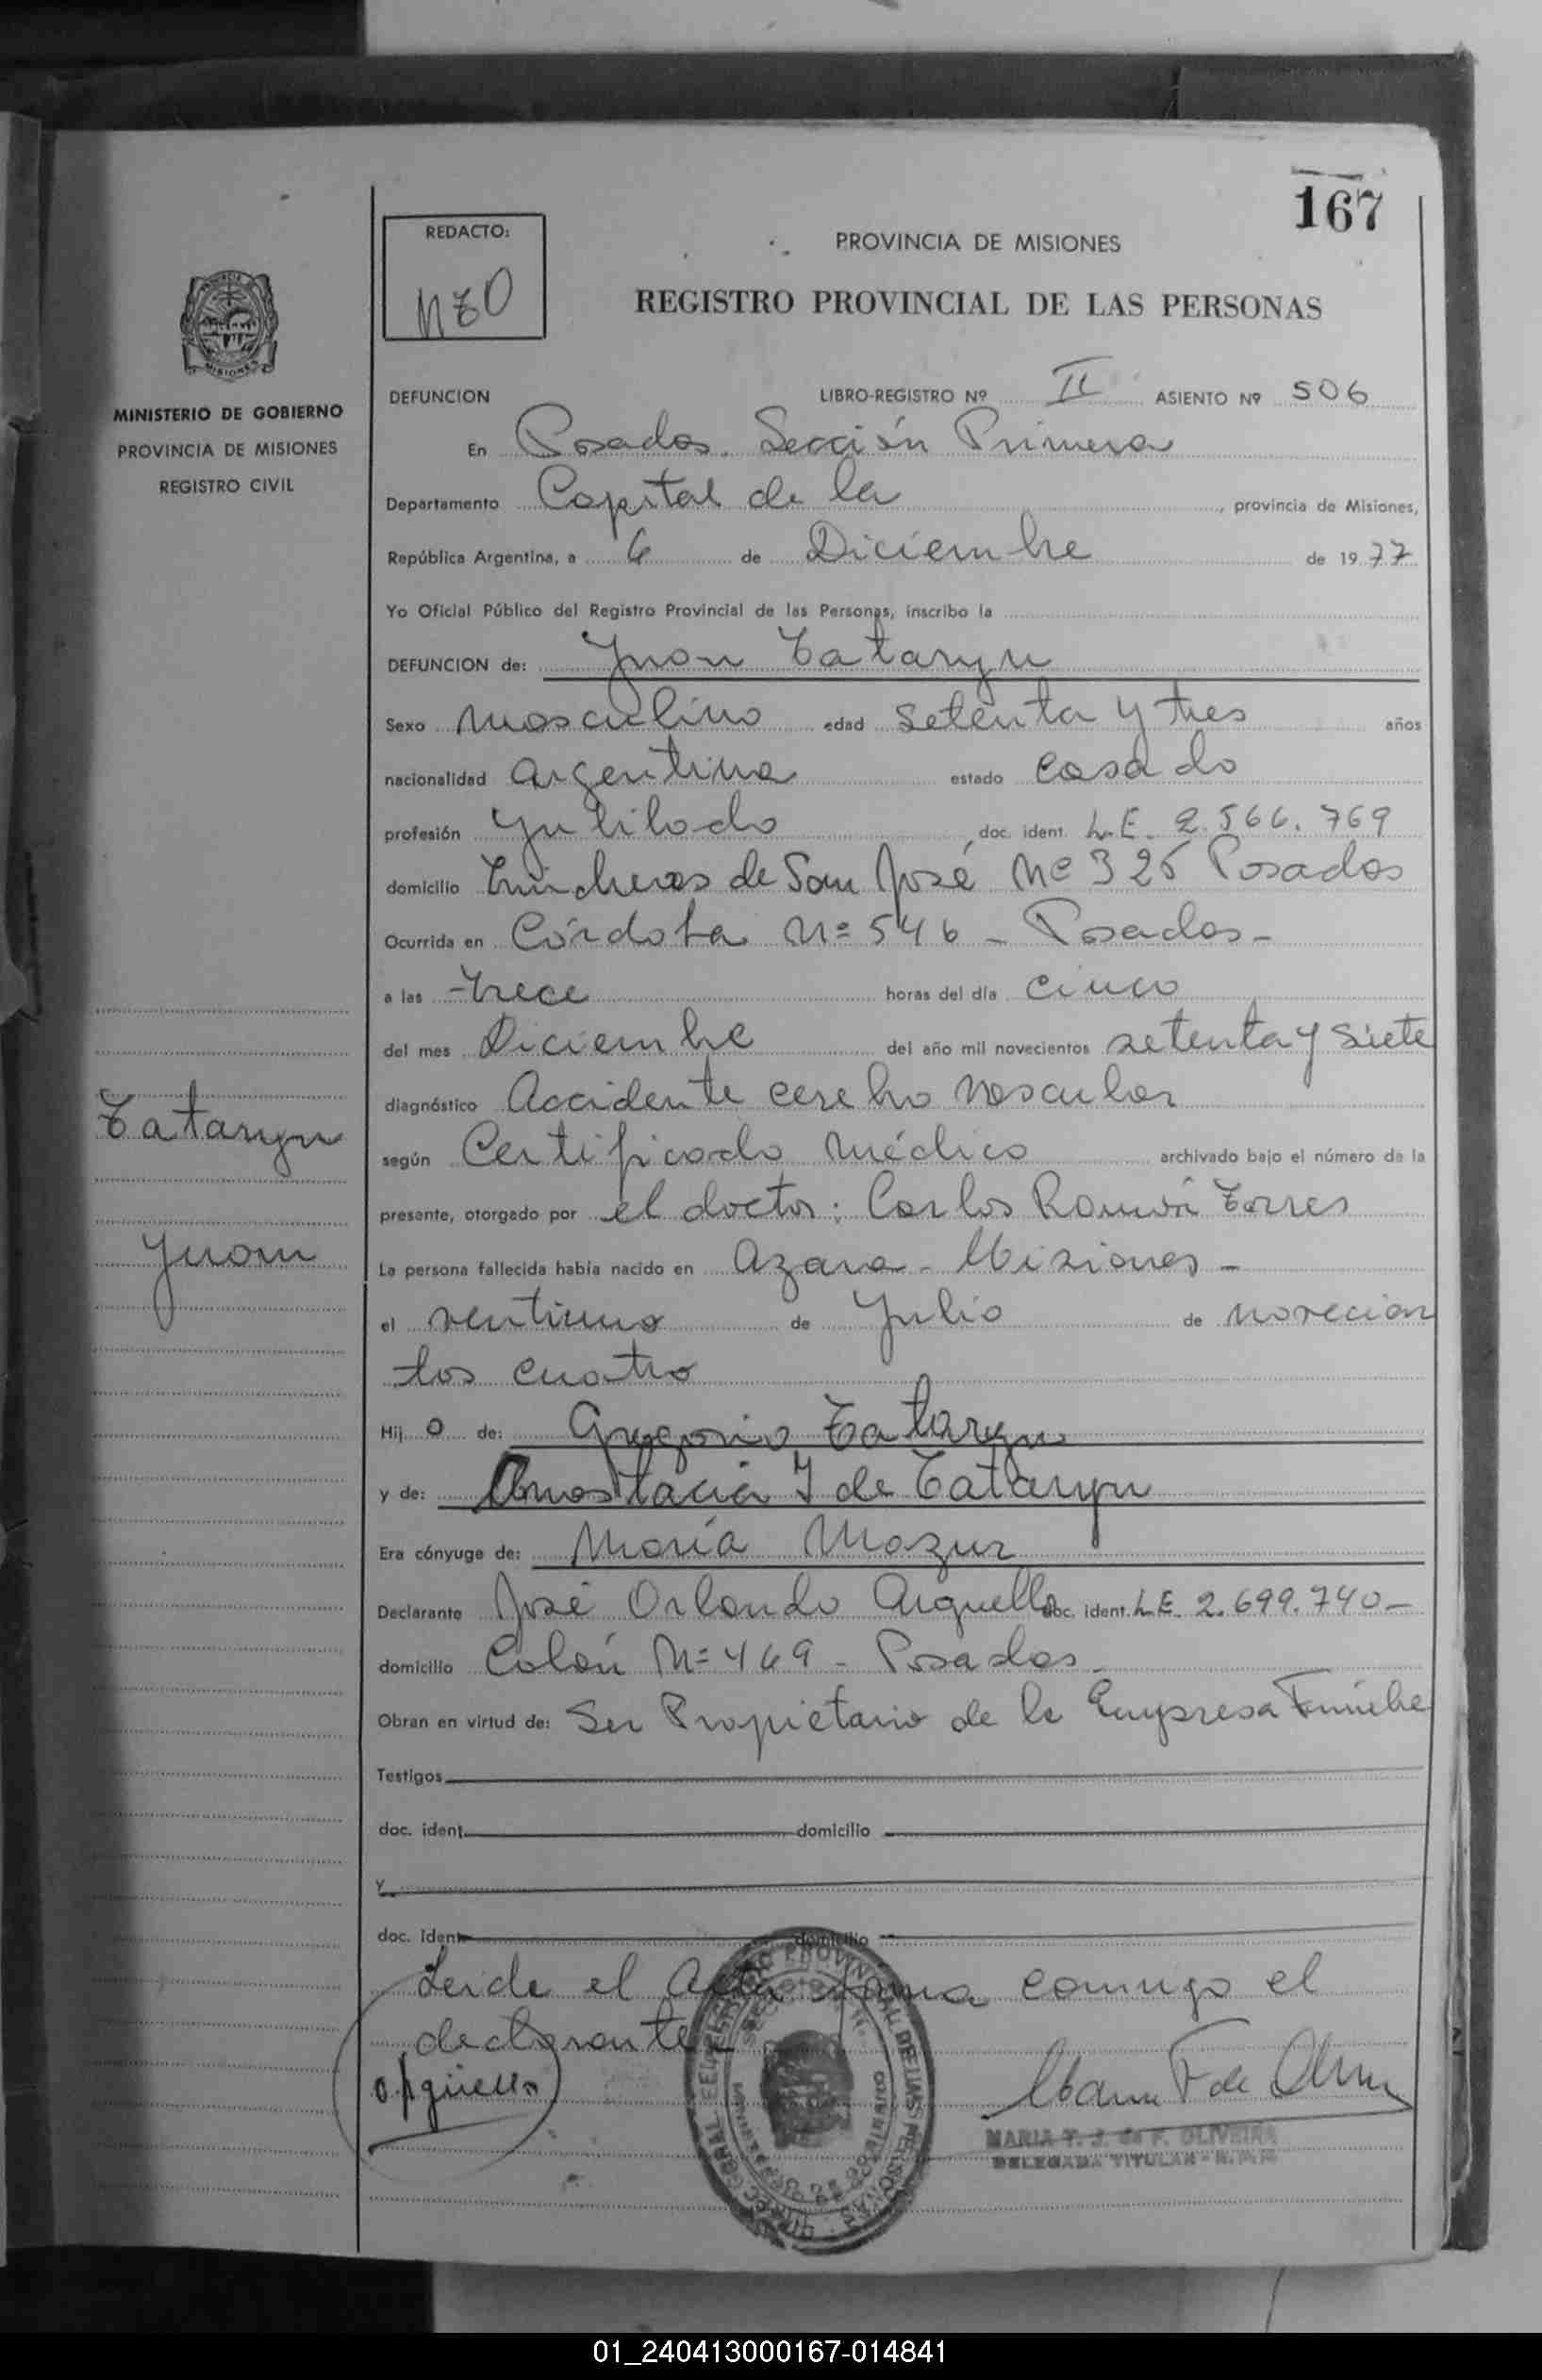 167
REDACTO:
PROVINCIA DE MISIONES
REGISTRO PROVINCIAL DE LAS PERSONAS
MISIONES
MINISTERIO DE GOBIERNO
PROVINCIA DE MISIONES
REGISTRO CIVIL
DEFUNCION LIBRO-REGISTRO Nº II ASIENTO Nº 506
En Posadas. Sección Primera
Departamento Capital de la , provincia de Misiones,
República Argentina, a 6 de Diciembre de 1977
Yo Oficial Público del Registro Provincial de las Personas, inscribo la
DEFUNCION de: Juan Tataryn
Sexo masculino edad setenta y tres años
nacionalidad argentina estado casado
profesión Jubilado doc. ident. L.E. 2.566.769
domicilio Trincheras de San José Nº 325 Posadas
Ocurrida en Córdoba Nº 546 - Posadas -
a las trece horas del día cinco
del mes Diciembre del año mil novecientos setenta y siete
diagnóstico Accidente cerebro vascular
según Certificado médico archivado bajo el número de la
presente, otorgado por el doctor: Carlos Ramón Torres
La persona fallecida había nacido en Azara - Misiones -
el ventiuno de Julio de novecien
tos cuatro
Hij o de: Gregorio Tataryn
y de: Anastacia J de Tataryn
Era cónyuge de: María Mazur
Declarante José Orlando Arguello doc. ident. L.E. 2.699.740 -
domicilio Colón Nº 469 - Posadas -
Obran en virtud de: Ser Propietario de la Empresa Fúnebre
Testigos
doc. ident. domicilio
y
doc. ident. domicilio
Leida el Acta firma conmigo el
declarante
Tataryn
Juan
MARIA T. J. de F. OLIVEIRA
DELEGADA TITULAR - R.P.P.
01_240413000167-014841